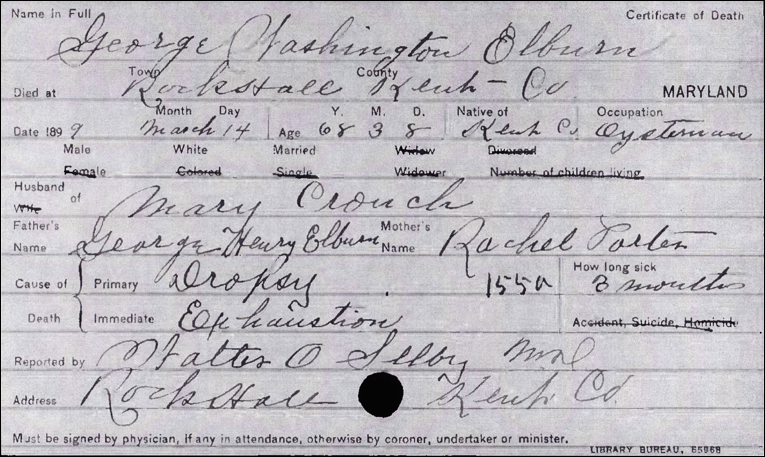 Name in Full Certificate of Death
George Washington Elburn
Town County
Died at Rockhall Kent Co MARYLAND
Month Day Y. M. D. Native of Occupation
Date 1899 March 14 Age 68 3 8 Kent Co. Oysterman
Male White Married Widow Divorced
Female Colored Single Widower Number of children living
Husband of Mary Crouch
Wife
Father's Mother's
Name George Henry Elburn Name Rachel Porter
Cause of Primary Dropsy 155 How long sick
3 months
Death Immediate Exhaustion Accident, Suicide, Homicide
Reported by Walter O Selby
Address Rock Hall Kent Co
Must be signed by physician, if any in attendance, otherwise by coroner, undertaker or minister.
LIBRARY BUREAU, 65968